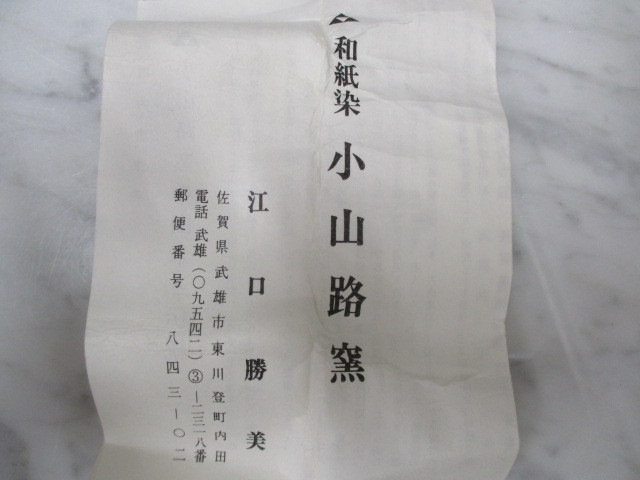 和紙染 小山路窯
江口勝美
佐賀県武雄市東川登町内田
電話 武雄(〇九五四二)③ー二三一八番
郵便番号 八四三ー〇二